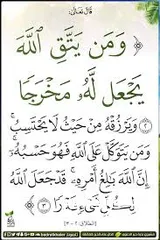 قال تعالى:
﴿ وَمَن يَتَّقِ ٱللَّهَ
يَجۡعَل لَّهُۥ مَخۡرَجٗا
٢ وَيَرۡزُقۡهُ مِنۡ حَيۡثُ لَا يَحۡتَسِبُۚ
وَمَن يَتَوَكَّلۡ عَلَى ٱللَّهِ فَهُوَ حَسۡبُهُۥٓۚ
إِنَّ ٱللَّهَ بَٰلِغُ أَمۡرِهِۦۚ قَدۡ جَعَلَ ٱللَّهُ
لِكُلِّ شَيۡءٖ قَدۡرٗا ٣ ﴾